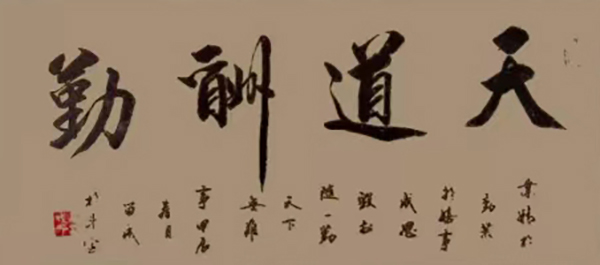 天道酬勤
業精於
勤荒
於嬉事
成思
毀於
随一勤
天下
無難
事甲辰
春月
書於斗室